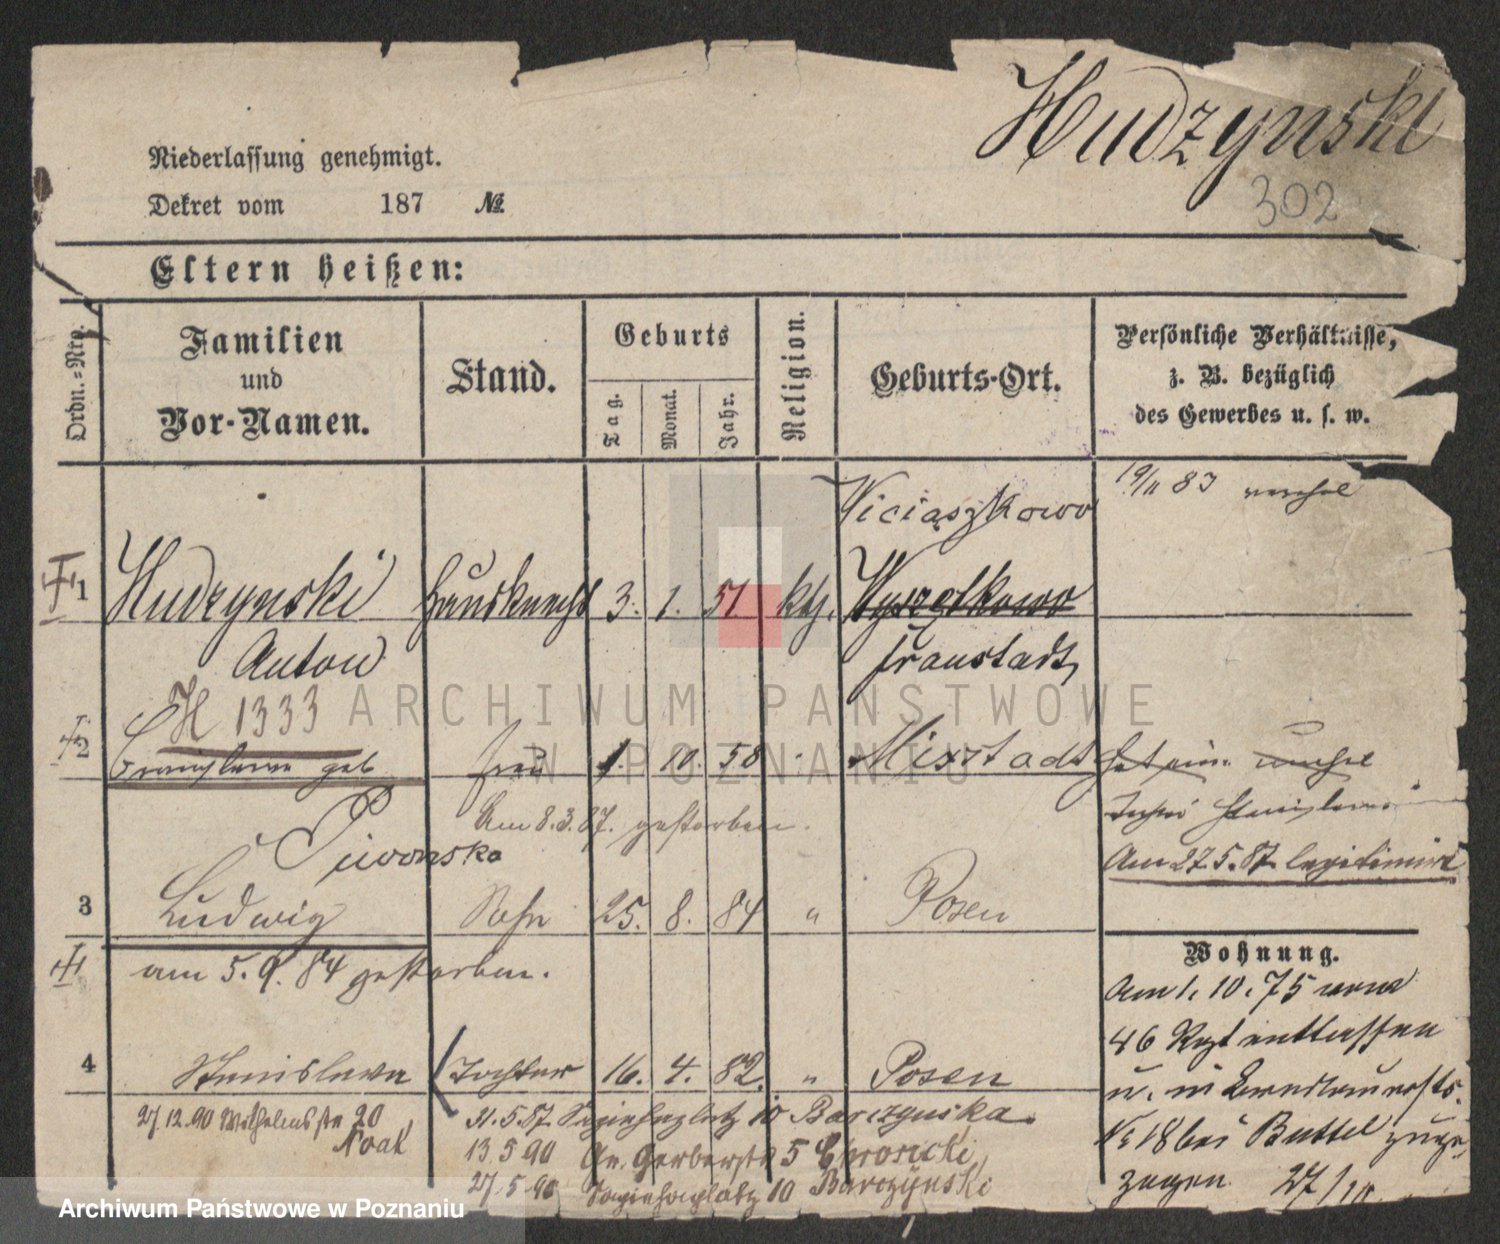 Hudzynski
302
Niederlassung genehmigt.
Dekret vom 187 №
Eltern heißen:
Ordn.-Nro.
Familien
und
Vor-Namen.
Stand.
Geburts
Tag.
Monat.
Jahr.
Religion.
Geburts-Ort.
Persönliche Verhältnisse,
z. B. bezüglich
des Gewerbes u. s. w.
Wiciaszkowo
19/11 83
1 Hudzynski Hausknecht 3. 1. 51 kth. Wyszetkowo
Anton Fraustadt
H 1333
2 geb Frau 1. 10. 58 Mixstadt
Am 8.3.87. gestorben.
Piwonska
Am 27.5.87 legitimirt
3 Ludwig Sohn 25. 8. 84 " Posen
am 5.9.84 gestorben.
Wohnung.
Am 1.10.75 vom
46 Regt entlassen
4 Stanislawa Tochter 16. 4. 82. " Posen
u. in
27.12.90 Wilhelmstr 20
Noak
31.5.87 Sapiehaplatz 10 Barczynska
13.5 90 Gr. Gerberstr 5
27.5.90 Sapiehaplatz 10 Barczynski
№ 18 bei Buttel zuge-
zogen 27/10
ARCHIWUM PAŃSTWOWE
W POZNANIU
Archiwum Państwowe w Poznaniu